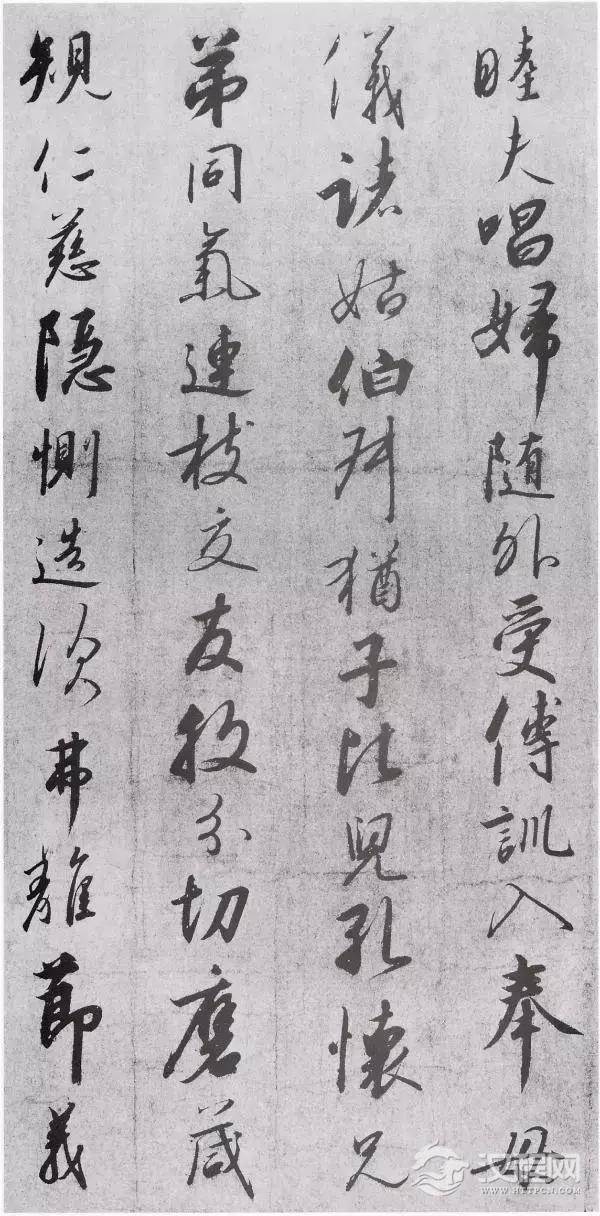 睦夫唱婦随外受傅訓入奉母
儀諸姑伯叔猶子比兒孔懷兄
弟同氣連枝交友投分切磨箴
規仁慈隱惻造次弗離節義
汉程网
WWW.HTTPCN.COM